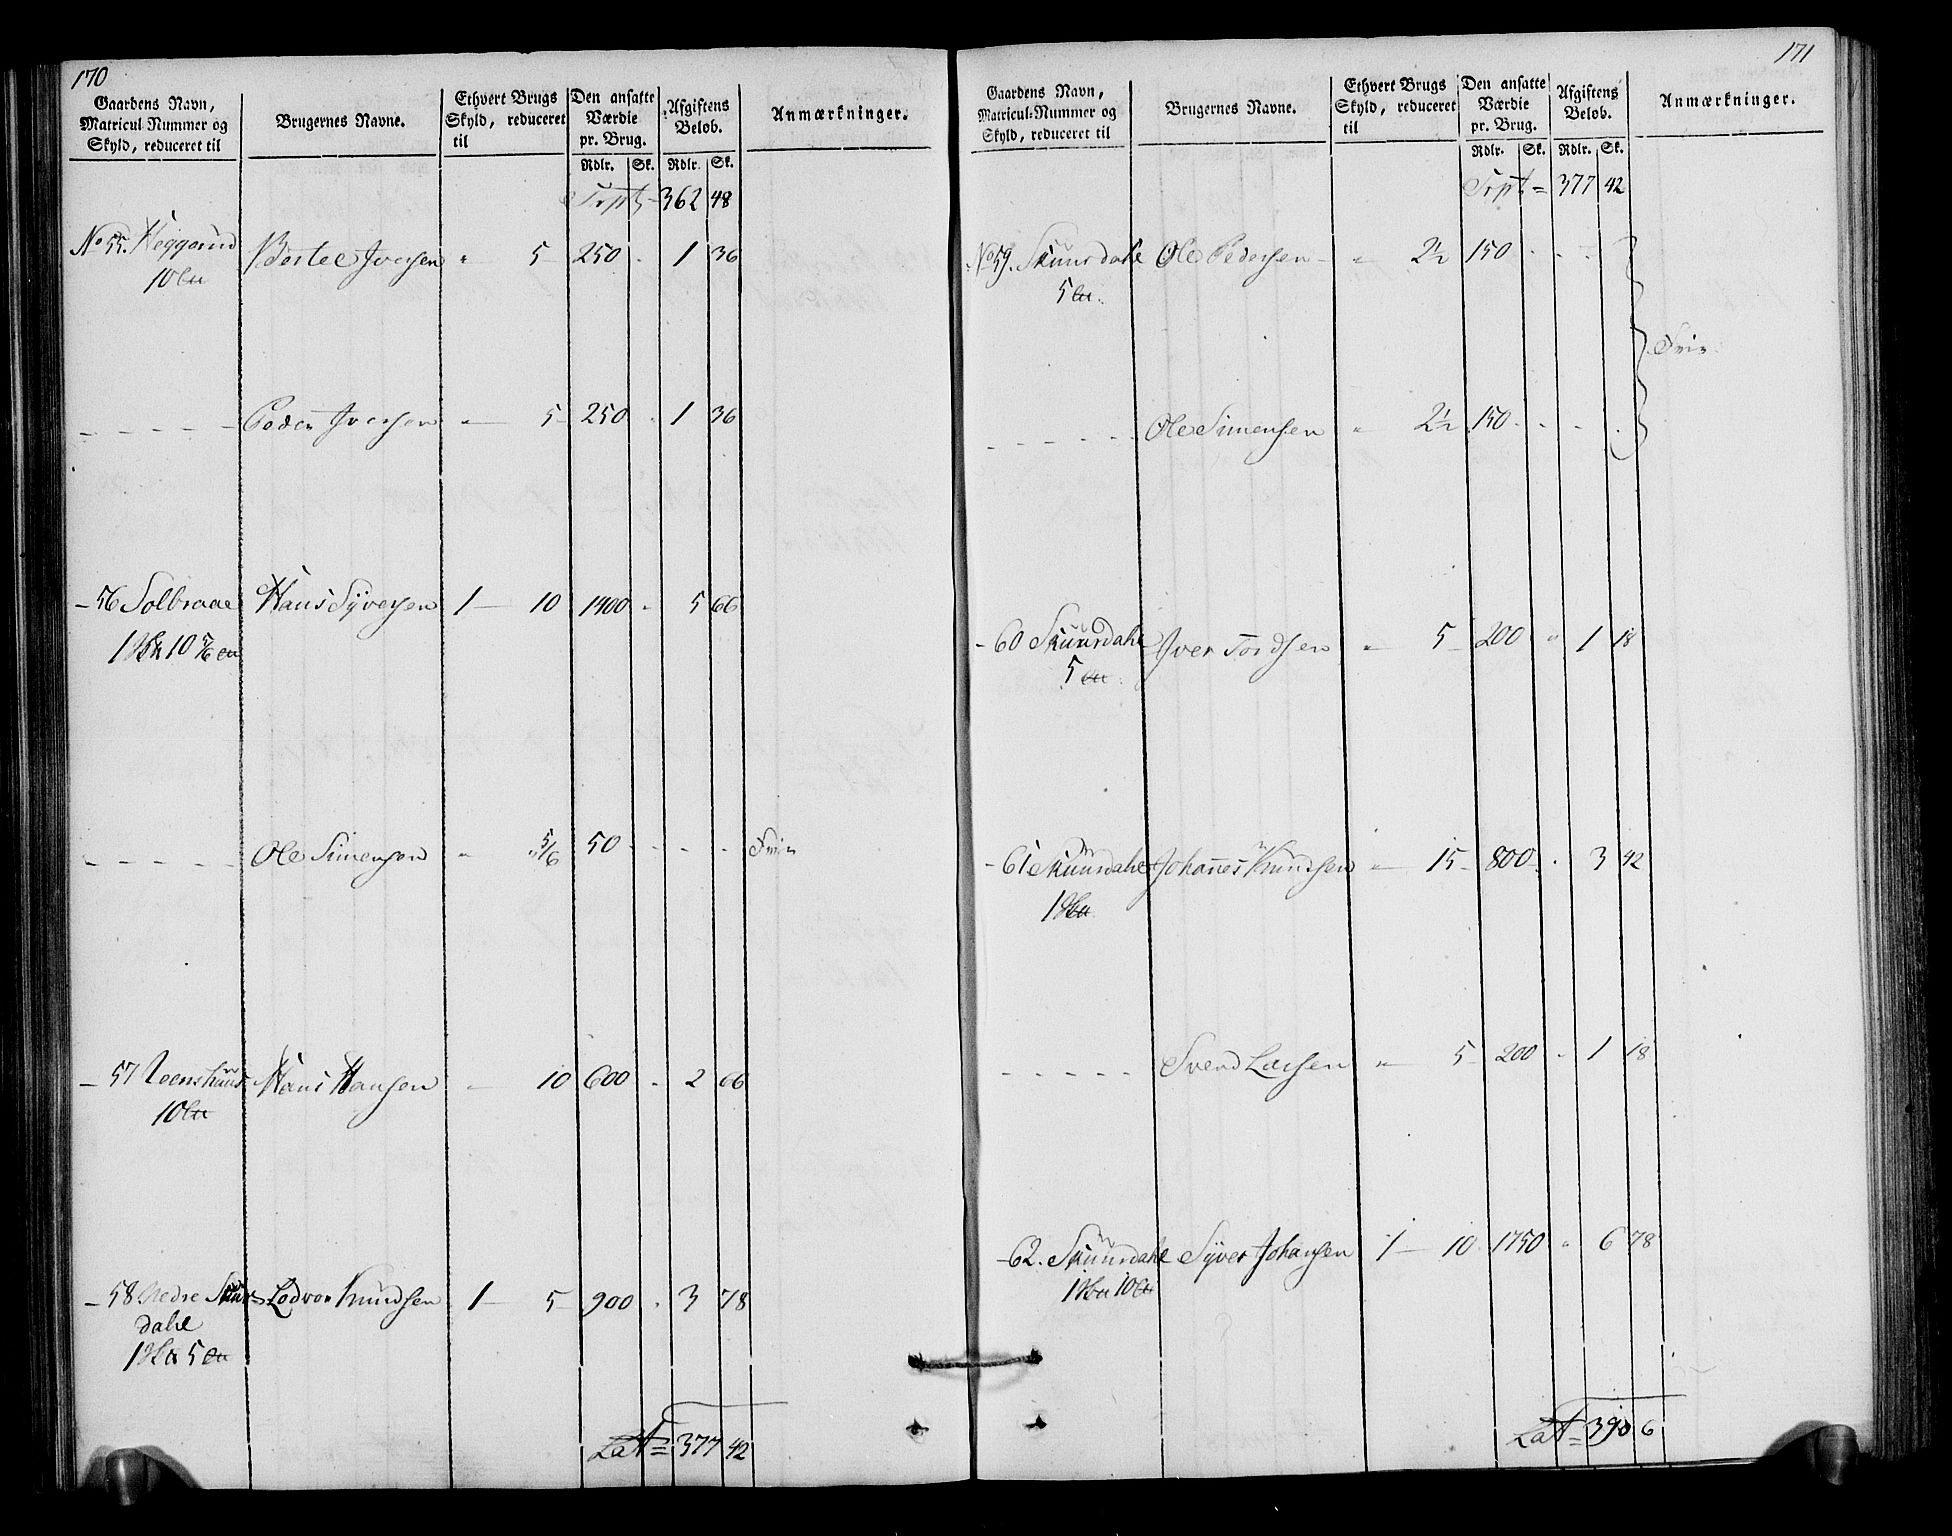 170
Gaardens Navn, Matricul-Nummer og Skyld, reduceret til
Brugernes Navne.
Ethvert Brugs Skyld, reduceret til
Den ansatte Værdie pr. Brug.
Afgiftens Beløb.
Anmærkninger.
Rdlr. Sk. Rdlr. Sk.
Trpt = 362 48
No 55. Heggarud Bertel Iversen " 5 250 - 1 36
10
- - - - - Peder Iversen " 5 250 - 1 36
- 56 Solbraae Hans Syversen 1 - 10 1400 - 5 66
1 10 5/6
- - - - Ole Simensen " 5/6 50 - - - Frie
- 57 Hans Hansen - 10 600 - 2 66
10
- 58 Nedre Skuurs= Lodvor Knudsen 1 - 5 900 - 3 78
dahl
1 5
Lat = 377 42
171
Gaardens Navn, Matricul-Nummer og Skyld, reduceret til
Brugernes Navne.
Ethvert Brugs Skyld, reduceret til
Den ansatte Værdie pr. Brug.
Afgiftens Beløb.
Anmærkninger.
Rdlr. Sk. Rdlr. Sk.
Trpt = 377 42
No 59. Skuursdahl Ole Pedersen - " 2½ 150 - - -
5
Frie
- - - - - Ole Simensen " 2½ 150 - - -
- 60 Skuursdahl Iver Tordsen " 5 200 " 1 18
5
- 61 Skuursdahl Johannes Knudsen " 15 - 800 - 3 42
1
- - - - - Svend Larsen " 5 - 200 - 1 18
- 62. Skuursdahl Syver Johansen 1 - 10 1750 " 6 78
1 10
Lat = 390 6